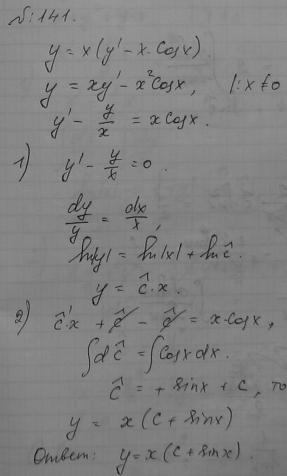 № 141.
y = x(y' - x·cosx)
y = xy' - x²cosx, |:x≠0
y' - y/x = x cosx.
1) y' - y/x = 0.
dy/y = dx/x,
ln|y| = ln|x| + ln ĉ.
y = ĉ·x.
2) ĉ'·x + ĉ - ĉ = x·cosx,
∫dĉ = ∫cosxdx.
ĉ = + sinx + c, то
y = x(c + sinx)
Ответ: y = x(c + sinx).